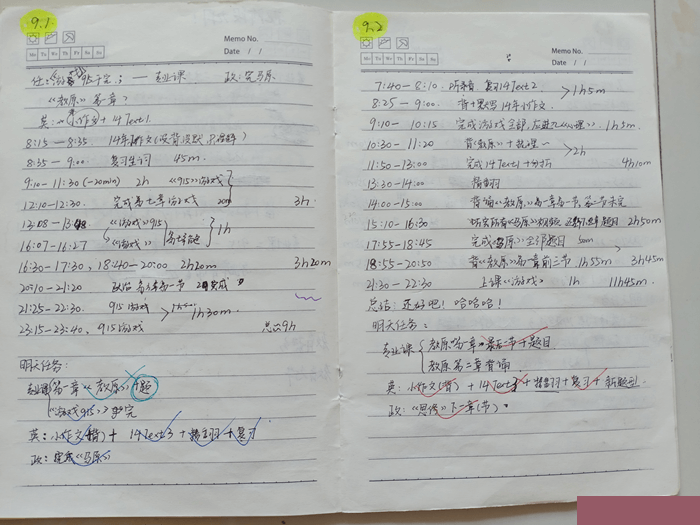 9.1
Memo No.
Mo Tu We Th Fr Sa Su
Date / /
《教原》第一章
英：小作文 + 14 Text1.
8:15 — 8:35 14年小作文
8:35 — 9:00 复习生词 45m.
9:10 — 11:30 (-20min) 2h 《915》游戏
12:10 — 12:30 完成第七章游戏 20m 3h
13:08 — 13:48 《游戏》915
16:07 — 16:27 《游戏》 1h
16:30 — 17:30, 18:40 — 20:00 2h20m 3h20m
20:10 — 21:20 政治
21:25 — 22:30. 915游戏 1h30m
23:15 — 23:40, 915游戏 总的9h
明天任务：
专业课 第一章《教原》+题
《游戏915》 完
英：小作文(背) + 14 Text3 + 精翻 + 复习
政：完成《马原》
9.2
Memo No.
Mo Tu We Th Fr Sa Su
Date / /
7:40 — 8:10. 复习14 Text2
8:25 — 9:00. 背+默写14年小作文. 1h5m
9:10 — 10:15 完成游戏全部, 1h5m
10:30 — 11:20 背《教原》+整理 2h
11:50 — 13:00 完成14 Text1+分析 4h10m
13:30 — 14:00 精翻
14:00 — 15:00 背诵《教原》第一章第一节, 第二节未完
15:10 — 16:30 《马原》视频 题目 2h50m
17:55 — 18:45 完成《马原》全部题目 50m
18:55 — 20:50 背《教原》第一章前三节 1h55m 3h45m
21:30 — 22:30 上课《游戏》 1h 11h45m
总结：还好吧！哈哈哈！
明天任务：
专业课 教原第一章最后一节+题目
教原第二章背诵
英：小作文(背) + 14 Text3 + 精翻 + 复习 + 新题型
政：《思修》下一章(节).